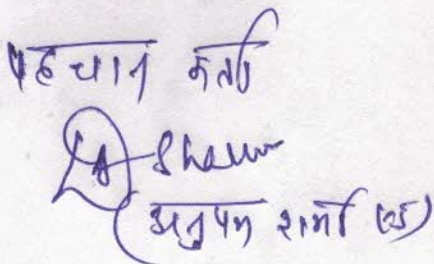 पहचान कर्ता
Sharma
(अनुपम शर्मा